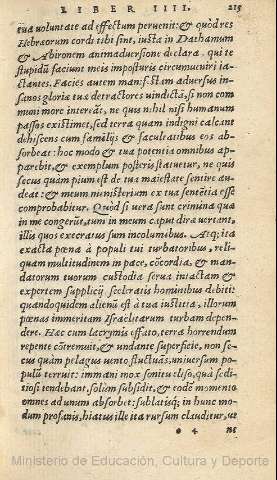 LIBER IIII. 215
tua uoluntate ad effectum peruenit: & quòd res
Hebræorum cordi tibi sint, iusta in Dathamum
& Abironem animaduersione declara. qui te
stupidū faciunt meis imposturis circumueniri ia-
ctantes. Facies autem manifestam aduersus in-
sanos gloriæ tuæ detractores uindictā, si non com
muni more intereāt, ne quis nihil nisi humanum
passos existimet, sed terra quam indignè calcant
dehiscens cum familijs & facultatibus eos ab-
sorbeat: hoc modo & tua potentia omnibus ap-
parebit, & exemplum posteris statuetur, ne quis
secus quàm pium est de tua maiestate sentire au-
deat: & meum ministerium ex tua sentētia esse
comprobabitur. Quòd si uera sunt crimina quæ
in me congerūt, tum in meum caput diræ uertant,
illis quos execratus sum incolumibus. Atq; ita
exacta pœna à populi tui turbatoribus, reli-
quam multitudinem in pace, cōcordia, & man-
datorum tuorum custodia serua intactam &
expertem supplicij sceleratis hominibus debiti:
quandoquidem alienū est à tua iustitia, illorum
pœnas immeritam Israelitarum turbam depen-
dere. Hæc cum lacrymis effato, terra horrendum
repente cōtremuit, & undante superficie, non se-
cus quàm pelagus uento fluctuās, uniuersum po
pulū terruit: immani mox sonitu eliso, quà sedi-
tiosi tendebant, solum subsidit, & eodē momento
omnes ad unum absorbet: sublatisq; in hunc mo-
dum profanis, hiatus ille ita rursum clauditur, ut
4 ne
Ministerio de Educación, Cultura y Deporte